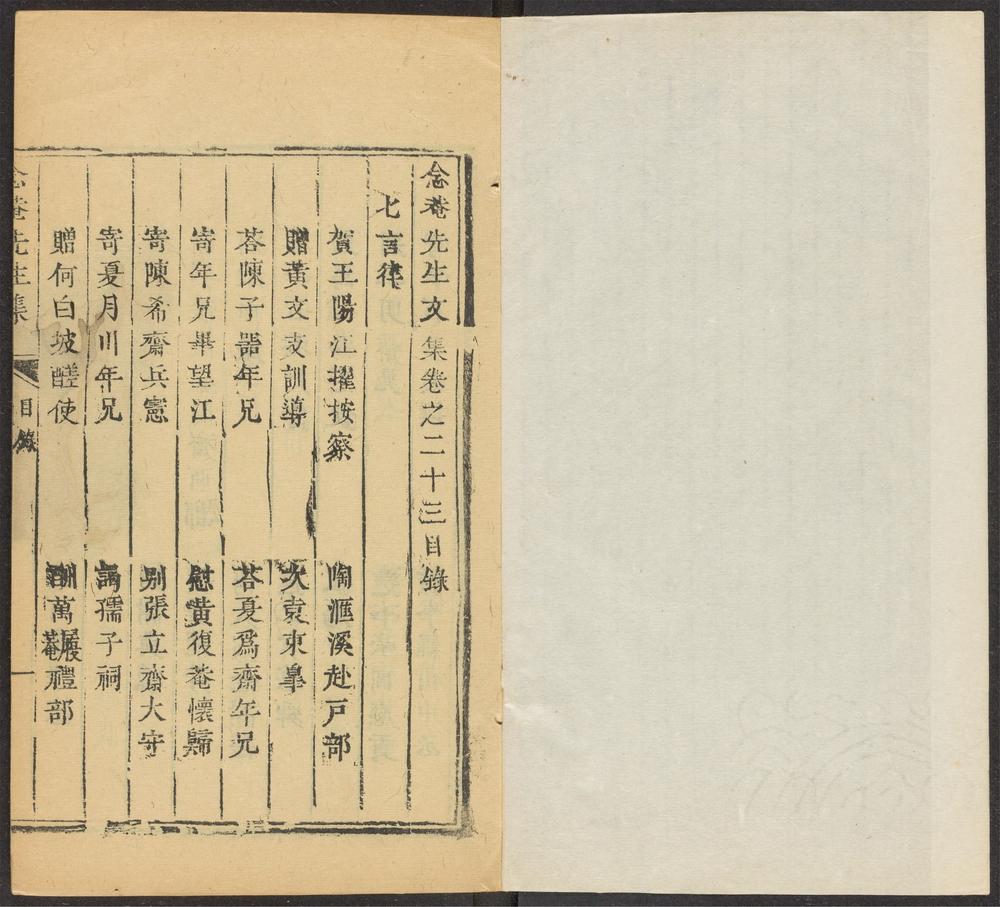 念菴先生文集卷之二十三目錄
七言律
賀王陽江擢按察 陶滙溪赴戸部
贈黃文支訓導 次袁東臯
荅陳子噐年兄 荅夏爲齋年兄
寄年兄畢望江 慰黃復菴懷歸
寄陳希齋兵憲 别張立齋大守
寄夏月川年兄 謁孺子祠
贈何白坡醝使 酬萬履菴禮部
念菴先生集 目錄 一